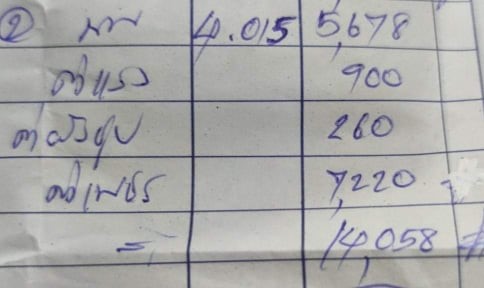 ② นาก 4.015 5,678
ค่าแรง 900
ค่าผังชุบ 260
ค่าเพชร 7,220
= 14,058 #